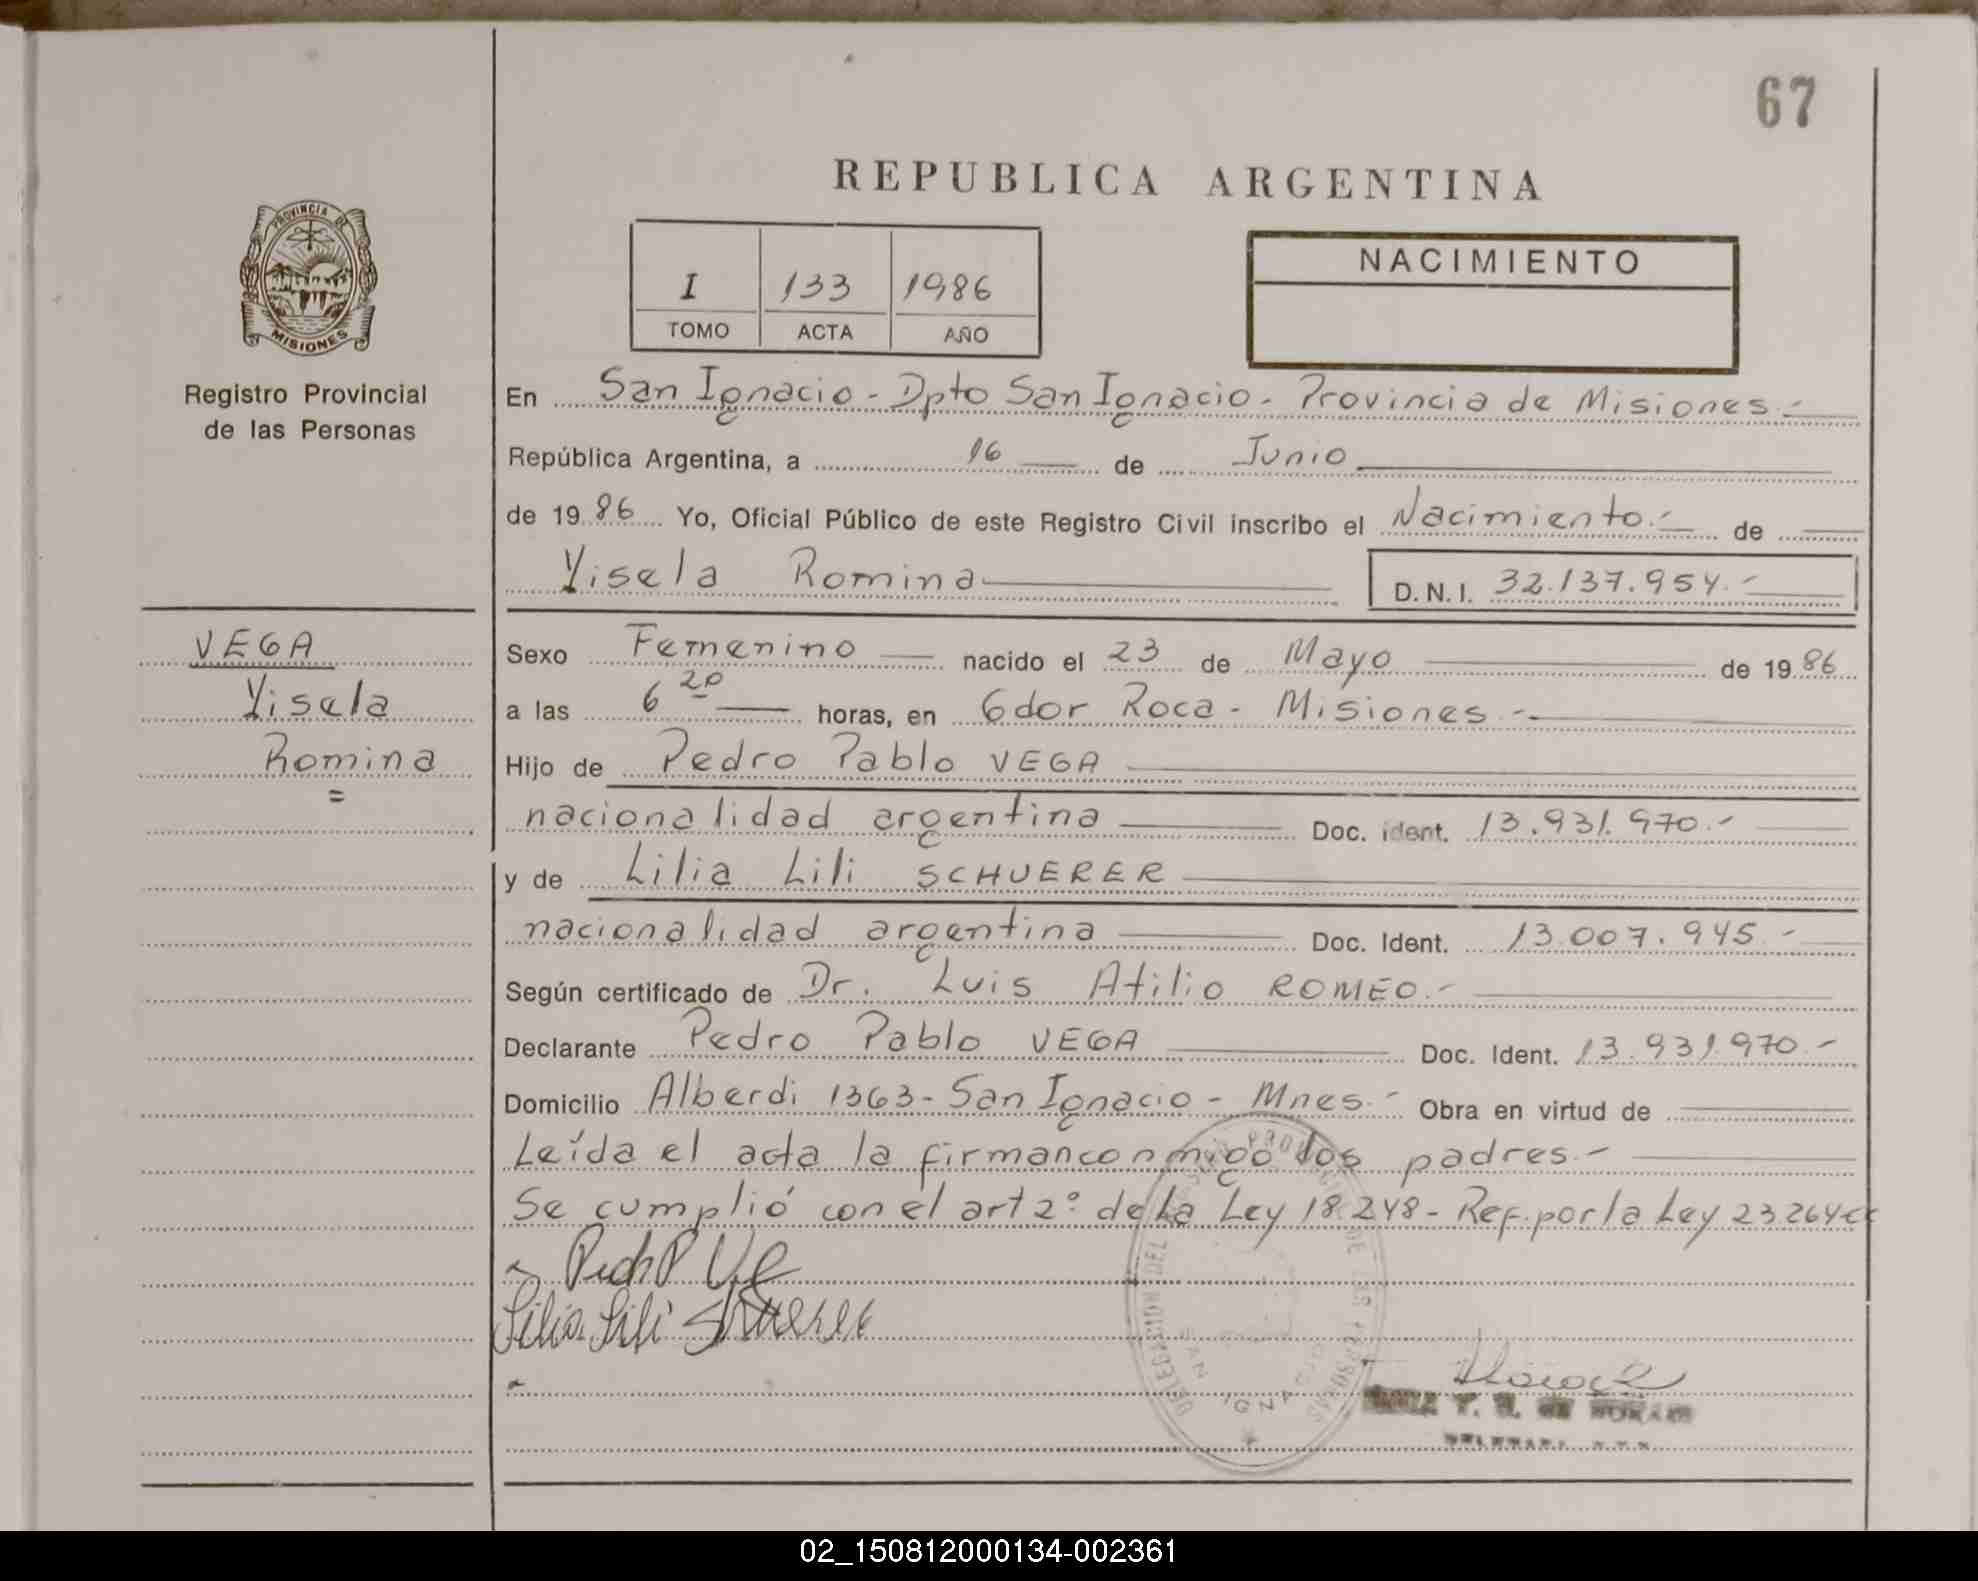 67
REPUBLICA ARGENTINA
PROVINCIA DE
MISIONES
Registro Provincial
de las Personas
I 133 1986
TOMO ACTA AÑO
NACIMIENTO
En San Ignacio - Dpto San Ignacio - Provincia de Misiones.-
República Argentina, a 16 de Junio
de 1986 Yo, Oficial Público de este Registro Civil inscribo el Nacimiento.- de
Yisela Romina
D.N.I. 32.137.954.-
VEGA
Yisela
Romina
=
Sexo Femenino nacido el 23 de Mayo de 1986
a las 6 20 horas, en Gdor Roca - Misiones.-
Hijo de Pedro Pablo VEGA
nacionalidad argentina Doc. ident. 13.931.970.-
y de Lilia Lili SCHUERER
nacionalidad argentina Doc. Ident. 13.007.945.-
Según certificado de Dr. Luis Atilio ROMEO.-
Declarante Pedro Pablo VEGA Doc. Ident. 13.931.970.-
Domicilio Alberdi 1363 - San Ignacio - Mnes.- Obra en virtud de
Leída el acta la firman conmigo los padres.-
Se cumplió con el art 2° de la Ley 18.248 - Ref. por la Ley 23.264
Lilia Lili
DELEGACION DEL
DE LAS PERSONAS
SAN IGNACIO
02_150812000134-002361